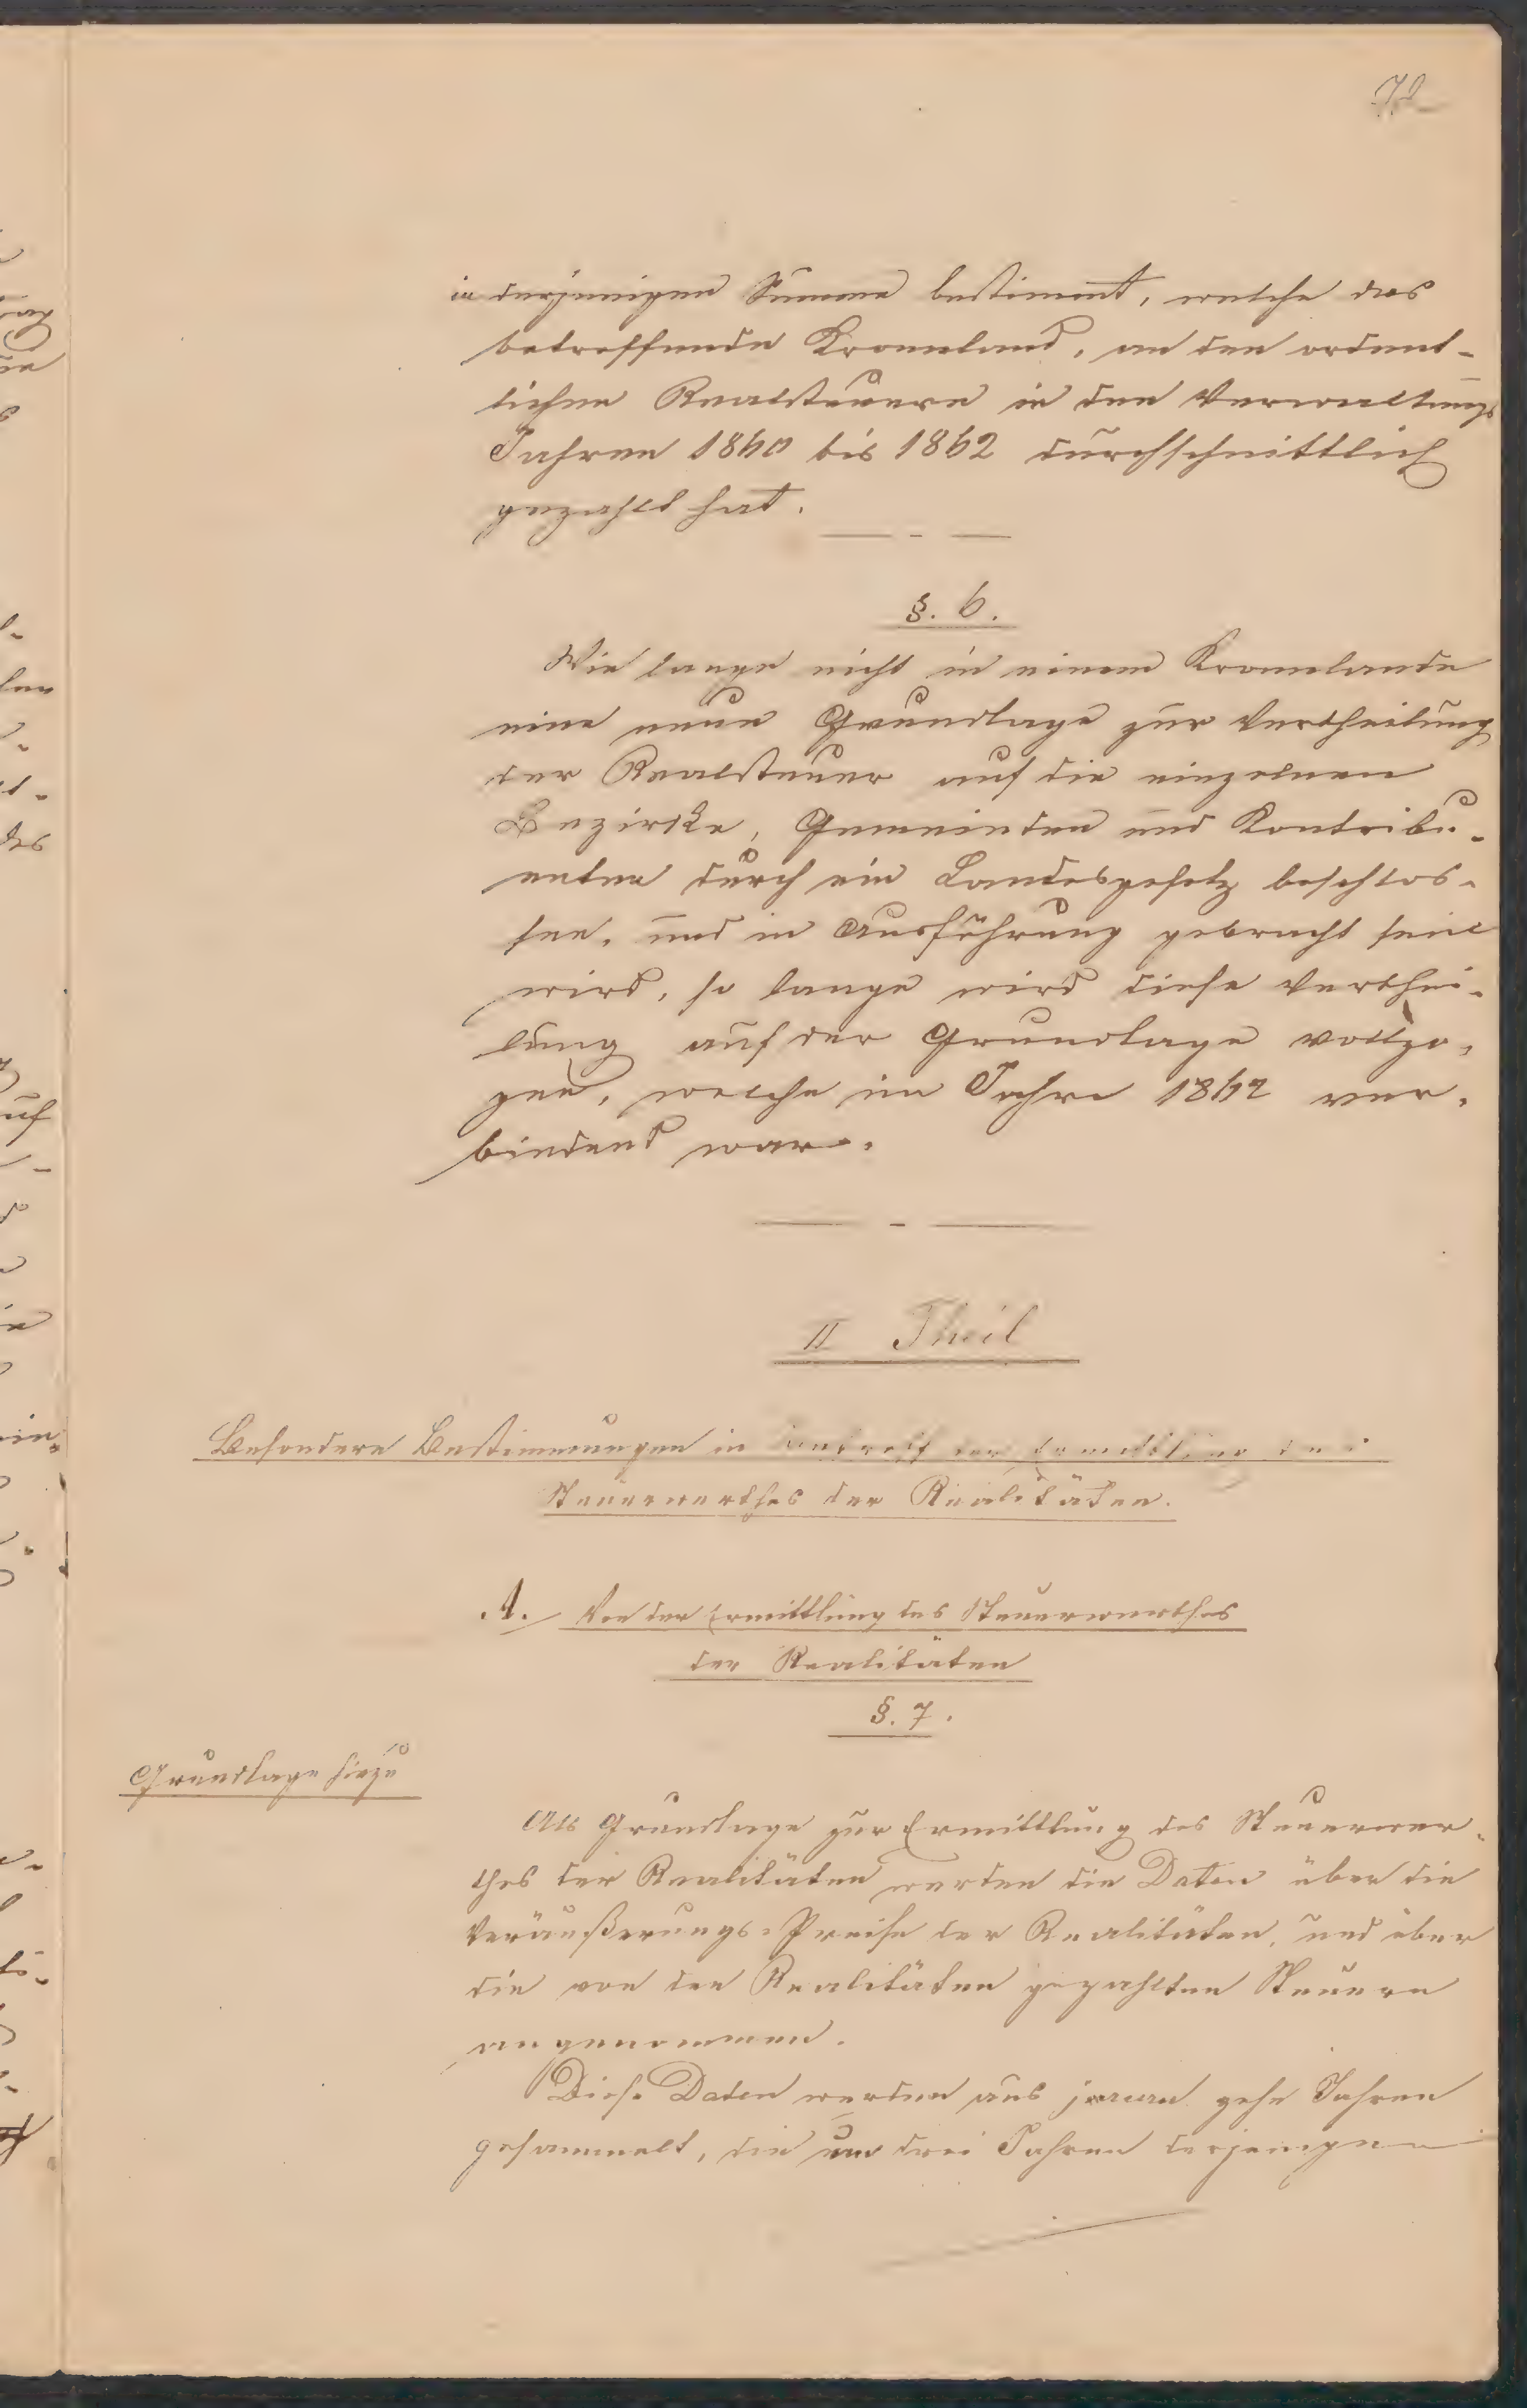 72
in derjenigen Summe bestimmt, welche das
betreffende Kronland, an den ordent-
lichen Realsteuern in den Verwaltungs
Jahren 1860 bis 1862 durchschnittlich
gezahlt hat.
§. 6.
Wie lange nicht in einem Kronlande
eine neue Grundlage zur Vertheilung
der Realsteuer auf die einzelnen
Bezirke, Gemeinden und Kontribu-
enten durch ein Landesgesetz beschlos-
sen, und in Ausführung gebracht sein
wird, so lange wird diese Verthei-
lung auf der Grundlage vollzo-
gen, welche im Jahre 1862 ver-
bindend war.
II Theil
Besondere Bestimmungen in Betreff der Ermittlung des
Steuerwerthes der Realitäten.
A. Von der Ermittlung des Steuerwerthes
der Realitäten
§. 7.
Grundlage hiezu
Als Grundlage zur Ermittlung des Steuerwer-
thes der Realitäten werden die Daten über die
Veräußerungs-Preise der Realitäten, und über
die von den Realitäten gezahlten Steuern
angenommen.
Diese Daten werden aus jenen zehn Jahren
gesammelt, die um drei Jahren derjenigen